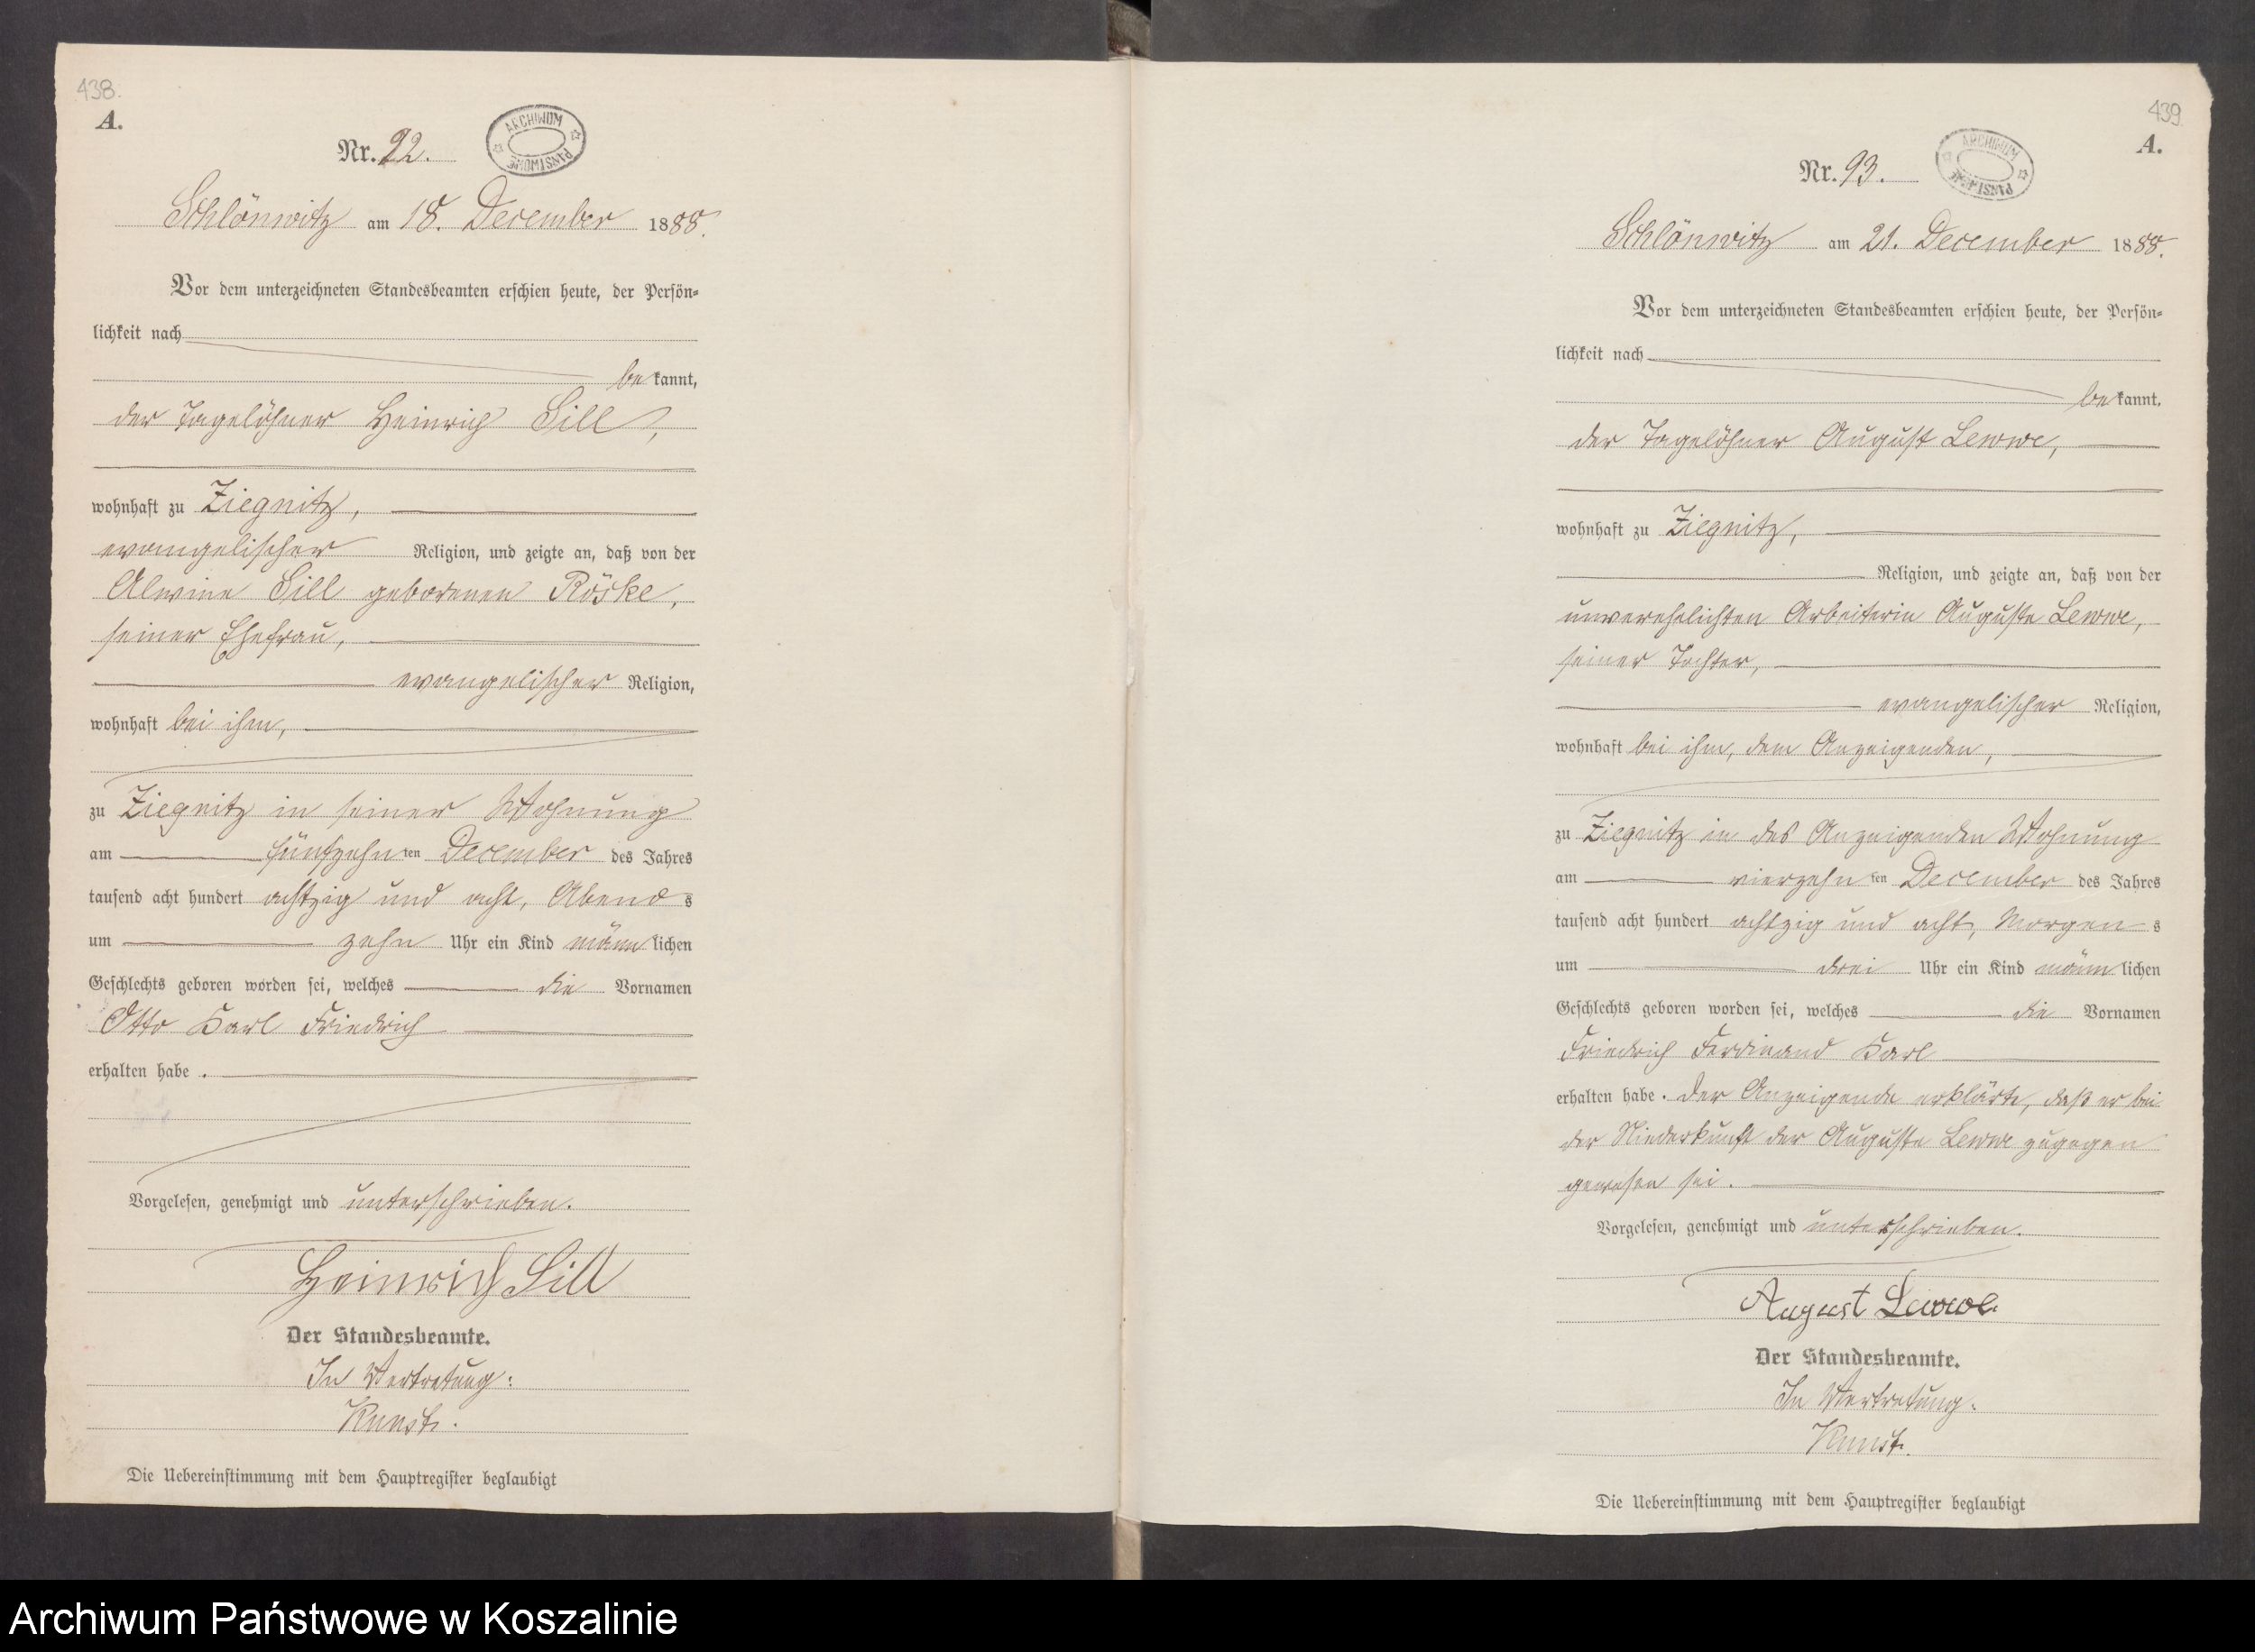 438.
A.
Nr. 92.
ARCHIWUM PAŃSTWOWE
Schlönwitz am 18. December 1888.
Vor dem unterzeichneten Standesbeamten erschien heute, der Persön-
lichkeit nach
bekannt,
der Tagelöhner Heinrich Sill,
wohnhaft zu Ziegnitz,
evangelischer Religion, und zeigte an, daß von der
Alwine Sill geborenen Röske,
seiner Ehefrau,
evangelischer Religion,
wohnhaft bei ihm,
zu Ziegnitz in seiner Wohnung
am fünfzehnten December des Jahres
tausend acht hundert achtzig und acht, Abends
um zehn Uhr ein Kind männlichen
Geschlechts geboren worden sei, welches die Vornamen
Otto Karl Friedrich
erhalten habe.
Vorgelesen, genehmigt und unterschrieben.
Heinrich Sill
Der Standesbeamte.
In Vertretung:
Kunst.
Die Uebereinstimmung mit dem Hauptregister beglaubigt
439.
A.
Nr. 93.
ARCHIWUM PAŃSTWOWE
Schlönwitz am 21. December 1888.
Vor dem unterzeichneten Standesbeamten erschien heute, der Persön-
lichkeit nach
bekannt.
der Tagelöhner August Lewwe,
wohnhaft zu Ziegnitz,
Religion, und zeigte an, daß von der
unverehelichten Arbeiterin Auguste Lewwe,
seiner Tochter,
evangelischer Religion,
wohnhaft bei ihm, dem Anzeigenden,
zu Ziegnitz in des Anzeigenden Wohnung
am vierzehnten December des Jahres
tausend acht hundert achtzig und acht, Morgens
um drei Uhr ein Kind männlichen
Geschlechts geboren worden sei, welches die Vornamen
Friedrich Ferdinand Karl
erhalten habe. Der Anzeigende erklärte, daß er bei
der Niederkunft der Auguste Lewwe zugegen
gewesen sei.
Vorgelesen, genehmigt und unterschrieben.
August Lewwe.
Der Standesbeamte.
In Vertretung.
Kunst.
Die Uebereinstimmung mit dem Hauptregister beglaubigt
Archiwum Państwowe w Koszalinie